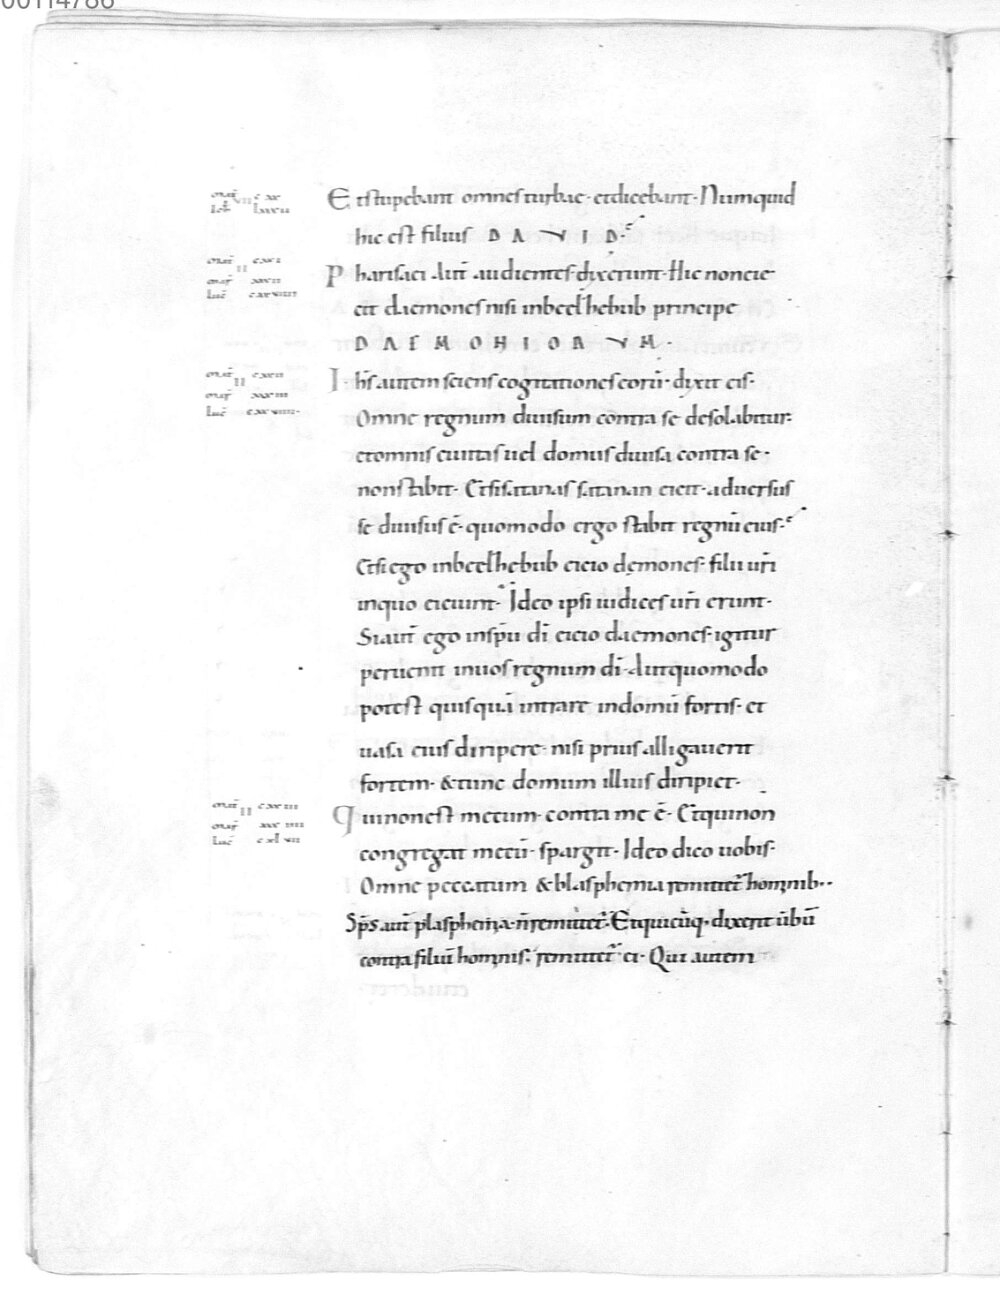 00114786
Et stupebant omnes turbae· et dicebant· Numquid
hic est filius DAVID·
Pharisaei aut̄ audientes dixerunt· Hic non eie
cit daemones nisi inbeelzebub principe
DAEMONIORVM·
Ih̄s autem sciens cogitationes eorū· dixit eis·
Omne regnum diuisum contra se desolabitur·
et omnis ciuitas uel domus diuisa contra se·
non stabit· Et si satanas satanan eicit· aduersus
se diuisus ē· quomodo ergo stabit regnū eius·
Et si ego inbeelzebub eicio demones· filii ur̄i
inquo eiciunt· Ideo ipsi iudices ur̄i erunt·
Si aut̄ ego insp̄u dī eicio daemones· igitur
peruenit inuos regnum dī· Aut quomodo
potest quisquā intrare indomū fortis· et
uasa eius diripere· nisi prius alligauerit
fortem· & tunc domum illius diripiet·
Qui non est mecum· contra me ē· Et qui non
congregat mecū· spargit· Ideo dico uobis·
Omne peccatum & blasphemia remittet̄ hominib··
Sp̄s aut̄ plasphemia· n̄ remittet̄· Et quicūq· dixerit ūbū
contra filiū hominis· remittet̄ ei· Qui autem